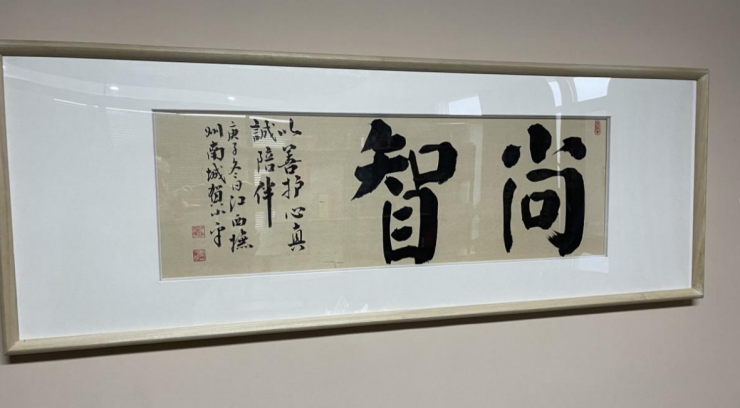 尚智
以善护心真
誠陪伴
庚子冬日江西撫
州南城賀小平